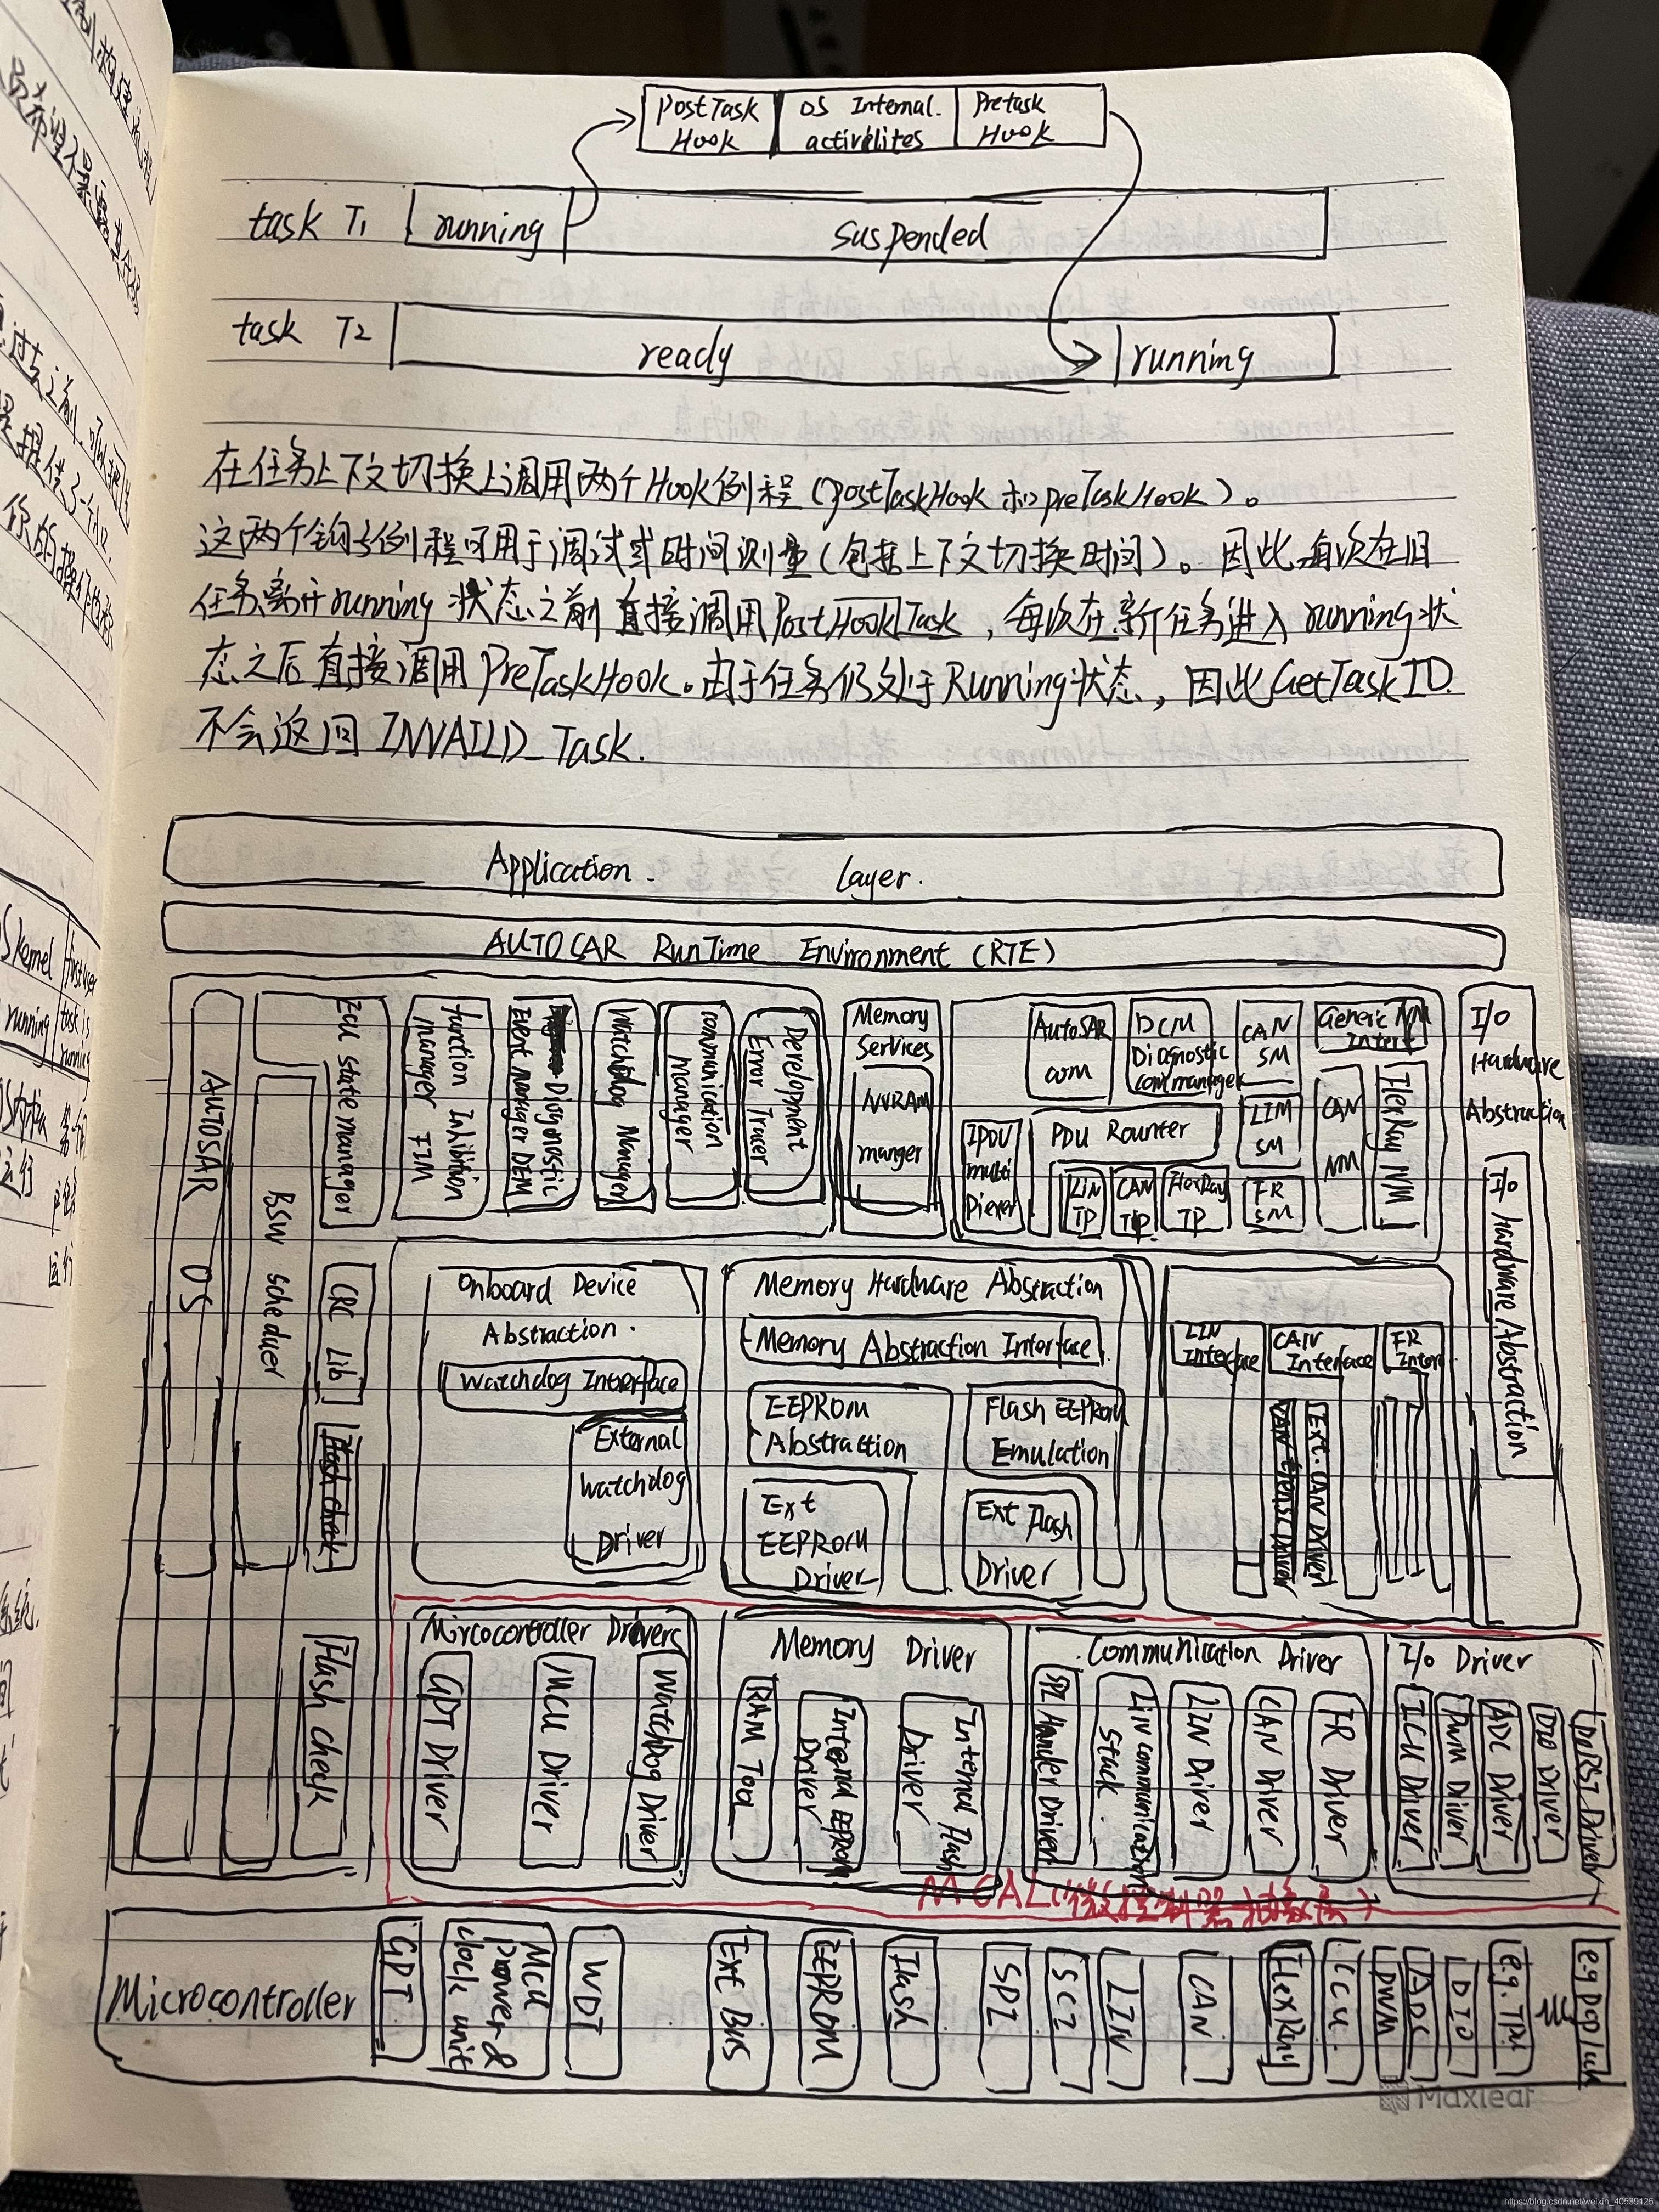 PostTask Hook
OS Internal. activelites
Pretask Hook
task T1
running
suspended
task T2
ready
running
在任务上下文切换上调用两个Hook例程(postTaskHook 和preTaskHook)。
这两个钩子例程可用于调试或时间测量(包括上下文切换时间)。因此每次在旧
任务离开running 状态之前直接调用PostHookTask,每次在新任务进入running状
态之后直接调用PreTaskHook。由于任务仍处于Running状态,因此GetTaskID
不会返回 INVAILD_Task.
Application Layer.
AUTOCAR RunTime Environment (RTE)
AUTOSAR OS
BSW scheduer
Ecu state manager
CRC Lib
Flash check
Flash check
function Inhibition manager FIM
Diagonostic Event manager DEM
Watchdog Manager
communication Manager
Development Error Tracer
Memory Services
NVRAM manger
AutoSAR com
DCM Diagnostic com manager
CAN SM
Generic NM Interf
IPDU multi Plexer
PDU Rounter
LIN TP
CAN TP.
FlexRay TP
LIM SM
FR SM
CAN NM
FlexRay NM
I/O Hardware Abstraction
I/o hardware Abstraction
Onboard Device
Abstraction.
Watchdog Interface
External watchdog Driver
Memory Hardware Abstraction
Memory Abstraction Interface
EEPROM Abstraction
Flash EEPROM Emulation
Ext EEPROM Driver
Ext Flash Driver
LIN Interface
CAN Interface
FR Inter
Ext. CAN DRIVER
Mircocontroller Drivers
GPT Driver
MCU Driver
Watchdog Driver
Memory Driver
RAM Test
Internal EEPROM Driver
Internal Flash Driver
Communication Driver
SPI Hander Driver
Lin communication stack.
LIN Driver
CAN Driver
FR Driver
I/o Driver
ICU Driver
PWM Driver
ADC Driver
DIO Driver
MCAL(微控制器抽象层)
Microcontroller
GPT
Mcu power & clock unit
WDT
Ext Bus
EEPROM
Flash
SPI
SCI
LIN
CAN
FlexRay
CCU.
PWM
ADC
DIO
e.g. TPU
OS kernel
running
first user task is running
Maxleaf
https://blog.csdn.net/weixin_40539125